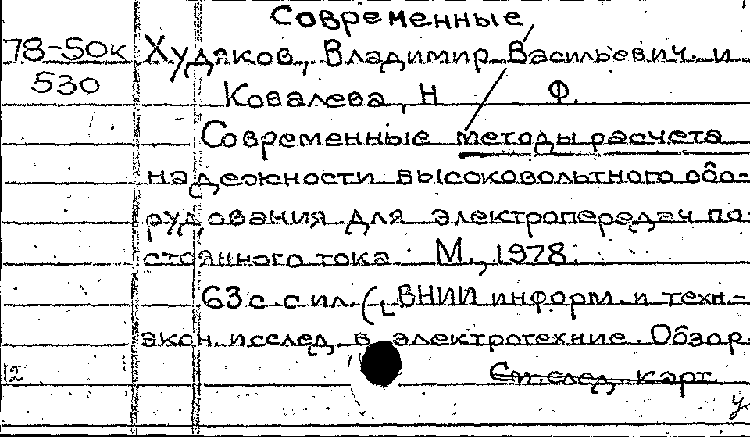 Современные
78-50к Худяков, Владимир Васильевич и
530 Ковалева, Н Ф.
Современные методы расчета
надежности высоковольтного обо-
рудования для электропередач по-
стоянного тока. М., 1978.
63 с. с ил. (ВНИИ информ. и техн.-
экон. исслед. в электротехнике. Обзор.
12 См. след. карт.